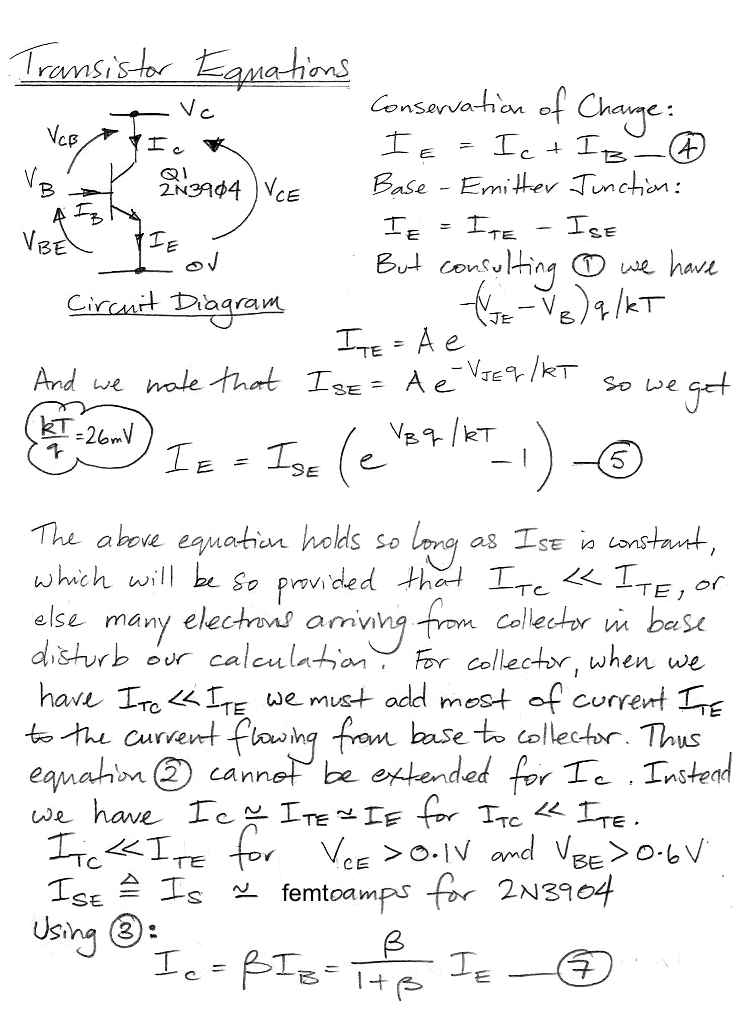 Transistor Equations
Vc
VCB
Ic
VB
Q1
2N3904
VCE
IB
VBE
IE
0V
Circuit Diagram
Conservation of Charge:
IE = Ic + IB — ④
Base - Emitter Junction:
IE = ITE - ISE
But consulting ① we have
ITE = A e^-(VJE - VB)q/kT
And we note that ISE = A e^-VJEq/kT so we get
kT/q = 26mV
IE = ISE (e^VBq/kT - 1) — ⑤
The above equation holds so long as ISE is constant,
which will be so provided that ITC << ITE, or
else many electrons arriving from collector in base
disturb our calculation. For collector, when we
have ITC << ITE we must add most of current ITE
to the current flowing from base to collector. Thus
equation ② cannot be extended for Ic. Instead
we have Ic ≃ ITE ≃ IE for ITC << ITE.
ITC << ITE for VCE > 0.1V and VBE > 0.6V
ISE ≜ IS ≃ femtoamps for 2N3904
Using ③:
Ic = βIB = β/(1+β) IE — ⑦